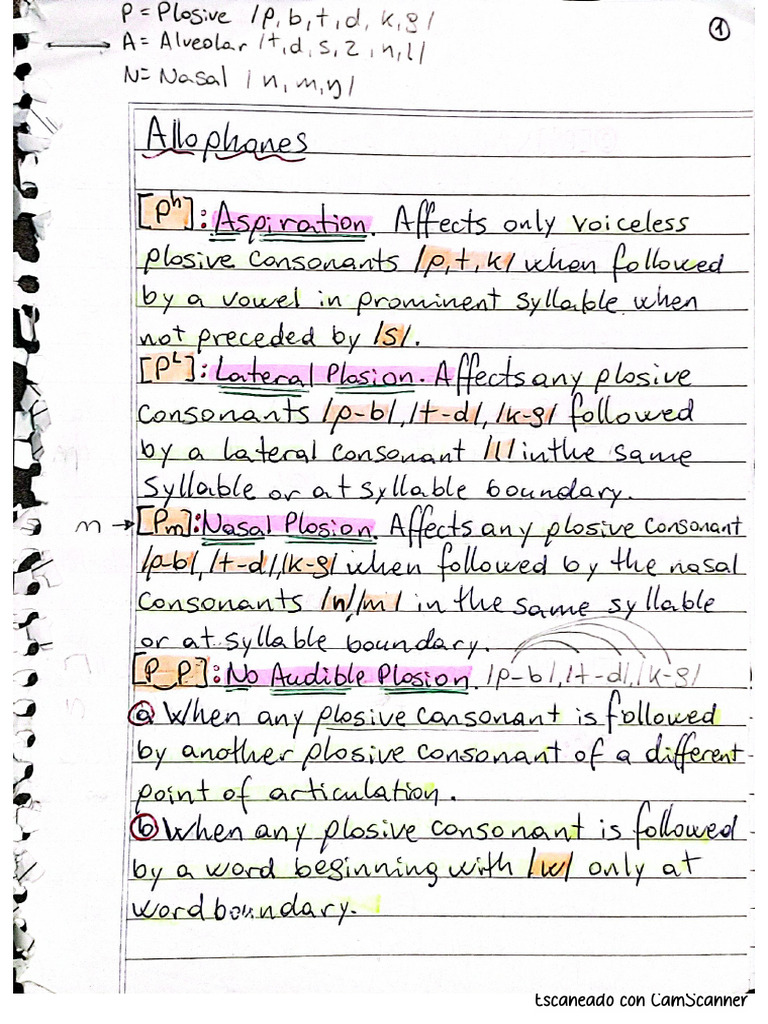 P = Plosive /p, b, t, d, k, g/
①
A = Alveolar /t, d, s, z, n, l/
N = Nasal /n, m, ŋ/
Allophanes
[Pʰ]: Aspiration. Affects only voiceless
plosive consonants /p, t, k/ when followed
by a vowel in prominent syllable when
not preceded by /s/.
[Pᴸ]: Lateral Plosion. Affects any plosive
consonants /p-b/, /t-d/, /k-g/ followed
by a lateral consonant /l/ in the same
syllable or at syllable boundary.
m → [Pm]: Nasal Plosion. Affects any plosive consonant
/p-b/, /t-d/, /k-g/ when followed by the nasal
consonants /n/, /m/ in the same syllable
or at syllable boundary.
[P_P]: No Audible Plosion. /p-b/, /t-d/, /k-g/
ⓐ When any plosive consonant is followed
by another plosive consonant of a different
point of articulation.
ⓑ When any plosive consonant is followed
by a word beginning with /w/ only at
word boundary.
Escaneado con CamScanner